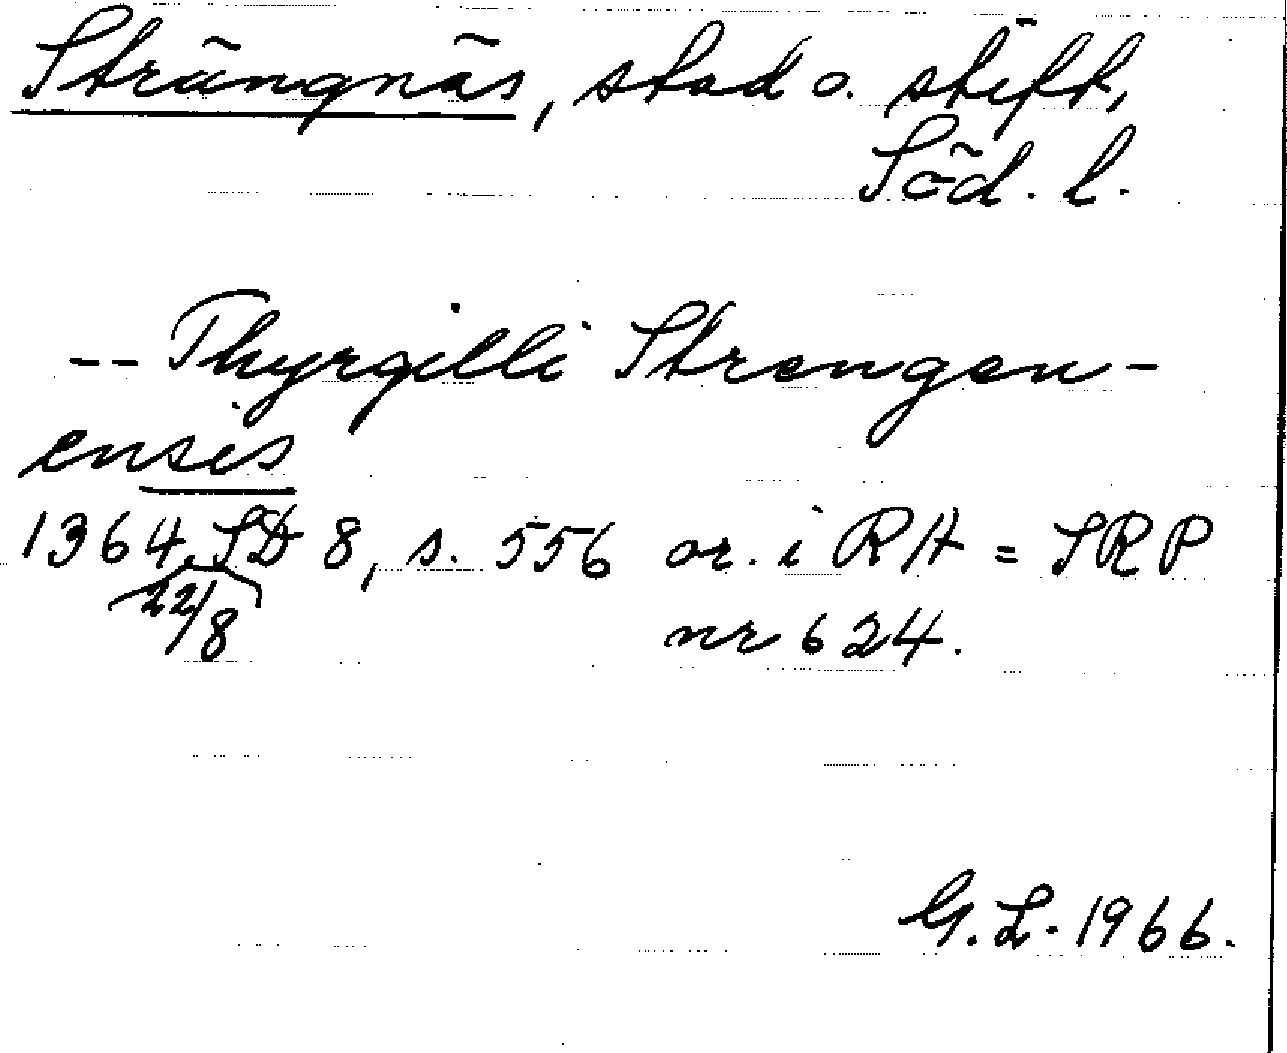 Strängnäs, stad o. stift,
Söd. l.
-- Thyrgilli Strengen-
ensis
1364 22/8 SD 8, s. 556 or. i RA = SRP
nr 624.
G. L. 1966.